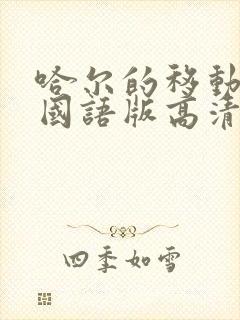 哈尔的移動
國語版高清
四季如雪